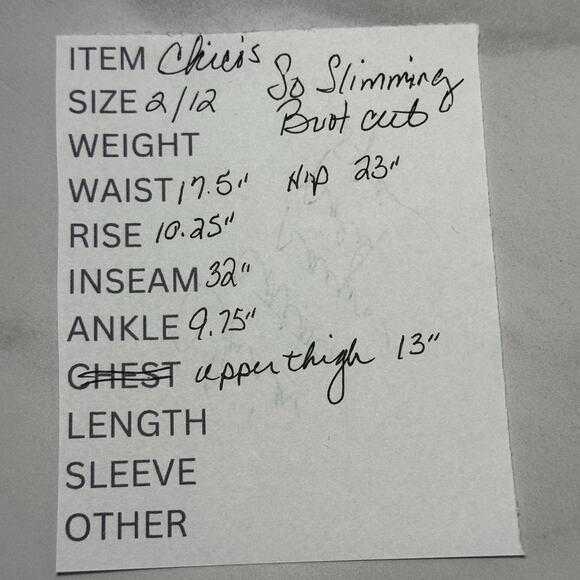 ITEM Chico's So Slimming
SIZE 2/12 Boot cut
WEIGHT
WAIST 17.5" Hip 23"
RISE 10.25"
INSEAM 32"
ANKLE 9.75"
CHEST upper thigh 13"
LENGTH
SLEEVE
OTHER